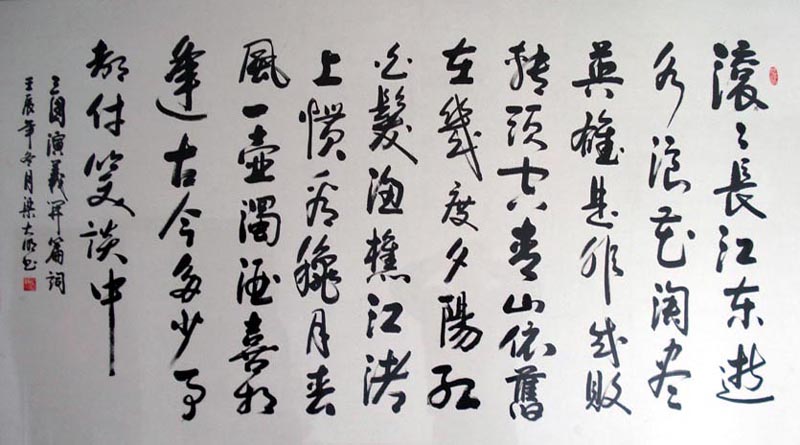 滚〻長江东逝
水浪花淘尽
英雄是非成敗
转頭空青山依舊
在幾度夕陽红
白髮渔樵江渚
上惯看穐月春
風一壶濁酒喜相
逢古今多少事
都付笑談中
三国演義开篇词
壬辰年冬月梁大书